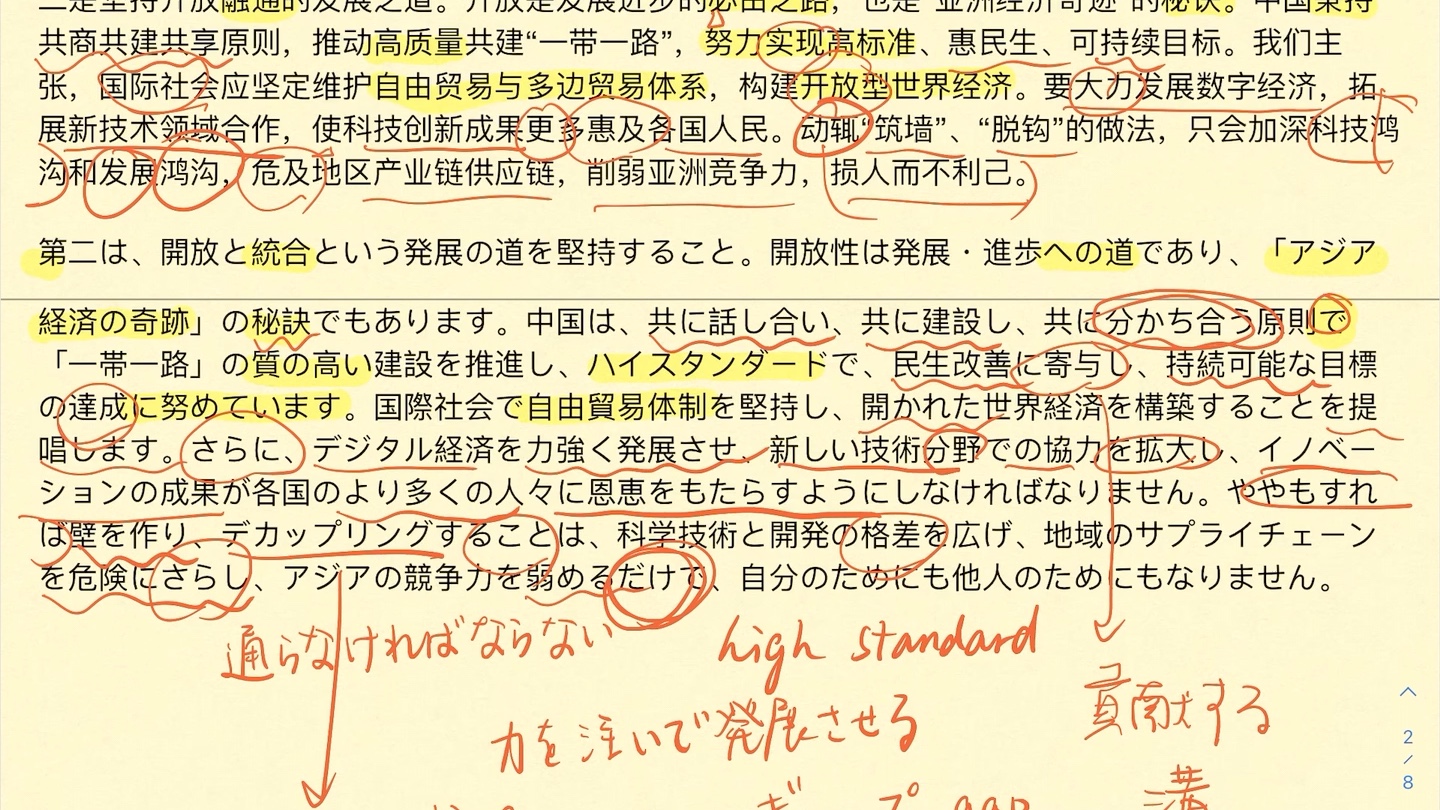 二是坚持开放融通的发展之道。开放是发展进步的必由之路，也是“亚洲经济奇迹”的秘诀。中国秉持
共商共建共享原则，推动高质量共建“一带一路”，努力实现高标准、惠民生、可持续目标。我们主
张，国际社会应坚定维护自由贸易与多边贸易体系，构建开放型世界经济。要大力发展数字经济，拓
展新技术领域合作，使科技创新成果更多惠及各国人民。动辄“筑墙”、“脱钩”的做法，只会加深科技鸿
沟和发展鸿沟，危及地区产业链供应链，削弱亚洲竞争力，损人而不利己。
第二は、開放と統合という発展の道を堅持すること。開放性は発展・進歩への道であり、「アジア
経済の奇跡」の秘訣でもあります。中国は、共に話し合い、共に建設し、共に分かち合う原則で
「一帯一路」の質の高い建設を推進し、ハイスタンダードで、民生改善に寄与し、持続可能な目標
の達成に努めています。国際社会で自由貿易体制を堅持し、開かれた世界経済を構築することを提
唱します。さらに、デジタル経済を力強く発展させ、新しい技術分野での協力を拡大し、イノベー
ションの成果が各国のより多くの人々に恩恵をもたらすようにしなければなりません。ややもすれ
ば壁を作り、デカップリングすることは、科学技術と開発の格差を広げ、地域のサプライチェーン
を危険にさらし、アジアの競争力を弱めるだけで、自分のためにも他人のためにもなりません。
通らなければならない
high standard
貢献する
力を注いで発展させる
溝
2
/
8